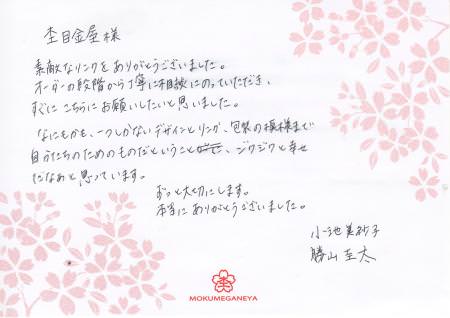 杢目金屋様
素敵なリングをありがとうございました。
オーダーの段階から丁寧に相談にのっていただき、
すぐにこちらにお願いしたいと思いました。
なにもかも、一つしかないデザインとリング、包装の模様まで
自分たちのためのものだということ、ジワジワと幸せ
だなぁと思っています。
ずっと大切にします。
本当にありがとうございました。
小池美砂子
勝山至太
MOKUMEGANEYA